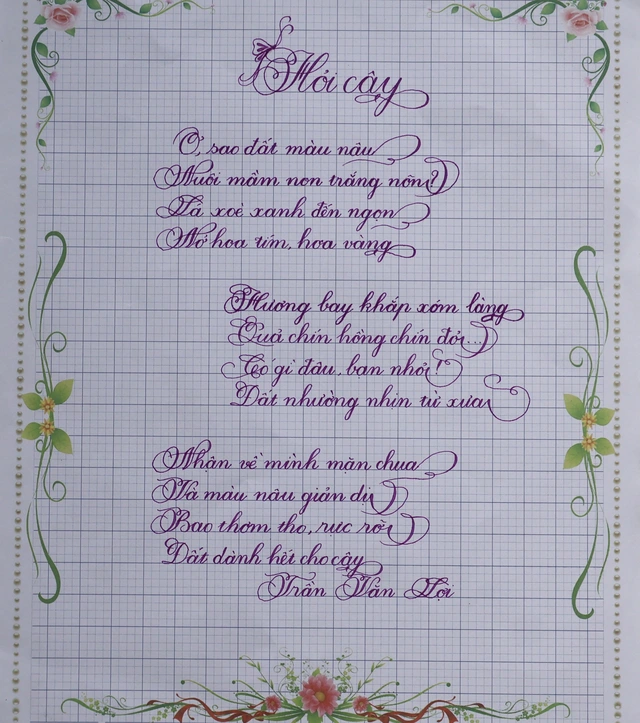 Hỏi cây
Ơ, sao đất màu nâu
Nuôi mầm non trắng nõn?
Lá xoè xanh đến ngọn
Nở hoa tím, hoa vàng
Hương bay khắp xóm làng
Quả chín hồng chín đỏ...
Có gì đâu, bạn nhỏ!
Đất nhường nhịn từ xưa
Nhận về mình mặn chua
Và màu nâu giản dị
Bao thơm tho, rực rỡ
Đất dành hết cho cây
Trần Văn Lợi